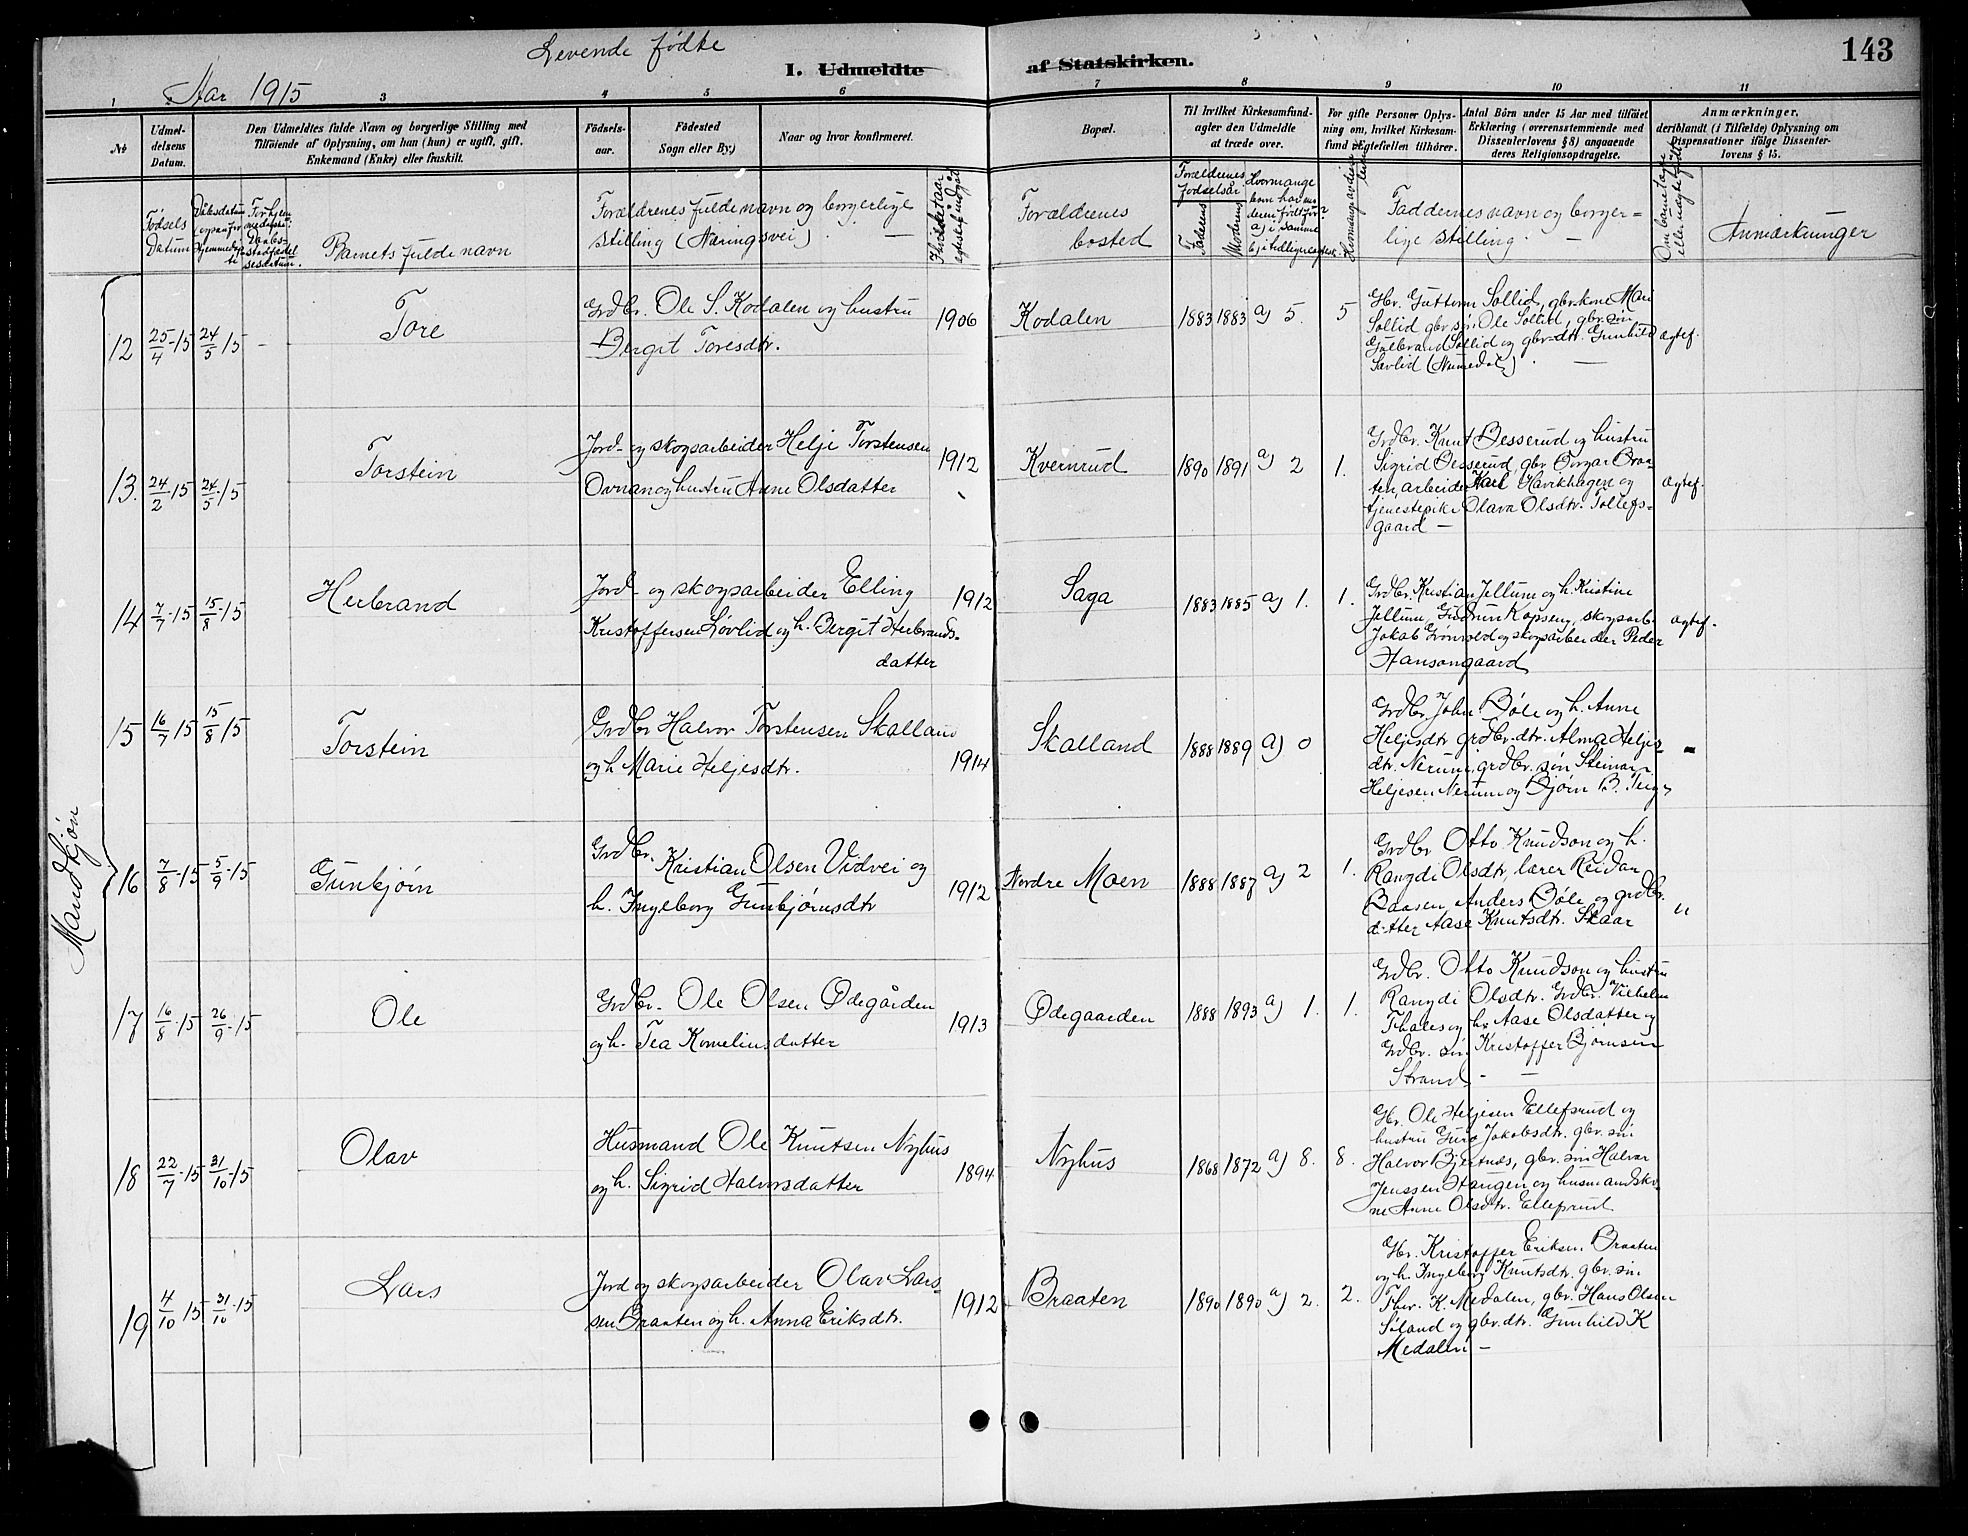 Levende fødte
Aar 1915
I. Udmeldte af Statskirken.
143
1 3 4 5 6 7 8 9 10 11
No
Udmel-
delsens
Datum.
Den Udmeldtes fulde Navn og borgerlige Stilling med
Tilføiende af Oplysning, om han (hun) er ugift, gift,
Enkemand (Enke) eller fraskilt.
Fødsels-
aar.
Fødested
Sogn eller By.)
Naar og hvor konfirmeret.
Bopæl.
Til hvilket Kirkesamfund-
agter den Udmeldte
at træde over.
For gifte Personer Oplys-
ning om, hvilket Kirkesam-
fund Ægtefællen tilhører.
Antal Börn under 15 Aar med tilföiet
Erklæring (overensstemmende med
Dissenterlovens § 8) angaaende
deres Religionsopdragelse.
Anmærkninger.
deriblandt (i Tilfælde) Oplysning om
Dispensationer ifölge Dissenter-
lovens § 15.
Fødsels
Datum
Barnets fulde navn
Forældrenes fulde navn og borgerlige
Stilling (Næringsvei)
Forældrenes
bosted
Forældrenes
fødselsår
Faderens
Moderens
Faddernes navn og borger=
lige stilling
Anmærkninger
Mandkjøn
12 25/4-15 24/5 15 -
Tore
Grdbr. Ole S. Kodalen og hustru
Bergit Toresdtr.
1906
Kodalen
1883 1883 a) 5. 5
Gbr. Guttorm Sollid, gbrskone Mari
Sollid gbr. søn Ole Sollid, gbr. søn
Gulbrand Sollid og gbr-dtr. Gunhild
Sævlid (Numedal)
ægtef.
13. 24/2-15 24/5-15
Torstein
Jord- og skogsarbeider Helje Torstensen
og hustru Anne Olsdatter
1912
Kvernrud
1890 1891 a) 2 1.
Grdbr. Knut Besserud og hustru
Sigrid Besserud, gbr.
arbeider Karl Havikhagen og
tjenestepike Olava Olsdtr. Tollefs=
gaard -
ægtef.
14 7/7-15 15/8-15
Herbrand
Jord- og skogsarbeider Elling
Kristoffersen Løvlid og h. Bergit Herbrands-
datter
1912
Saga
1883 1885 a) 1. 1.
Grdbr. Kristian Jellum og h. Kristine
Jellum, Gudrun Kopseng, skogsarb.
Jakob Grønvold og skogsarbeider Peder
Hansongaard
ægtef.
15 16/7-15 15/8-15
Torstein
Grdbr Halvor Torstensen Skalland
og h Marie Heljesdtr.
1914
Skalland
1888 1889 a) 0
Grdbr. John Bøle og h. Anne
Heljesdtr grdbr.-dtr. Alma Heljes-
dtr. Nerum, grdbr. søn Steinar
Heljesen Nerum og Bjørn B. Teig
"
16 7/8-15 5/9-15
Gunbjørn
Grdbr. Kristian Olsen Vidvei og
h. Ingeborg Gunbjørnsdtr
1912
Nordre Moen
1888 1887 a) 2 1.
Grdbr Otto Knudson og h.
Rangdi Olsdtr, lærer Reidar
Baasen, Anders Bøle og grdbr.
datter Aase Knutsdtr. Skaar
"
17 16/8-15 26/9-15
Ole
Grdbr. Ole Olsen Ødegården
og h. Tea Korneliusdatter
1913
Ødegaarden
1888 1893 a) 1. 1.
Grdbr. Otto Knudson og hustru
Rangdi Olsdtr. Grdbr. Vilhelm
Thales og h. Aase Olsdatter og
Grdbr. søn Kristoffer Bjørnsen
Strand -
18 22/7-15 31/10-15
Olav
Husmand Ole Knutsen Nyhus
og h. Sigrid Halvorsdatter
1894
Nyhus
1868 1872 a) 8. 8.
Gbr. Ole Heljesen Ellefsrud og
hustru Guro Jakobsdtr. gbr. søn
Halvor Bjertnes, gbr. søn Halvor
Jenssen Haugen og husmandsko-
ne Anne Olsdtr. Ellefsrud
19 4/10 15 31/10-15
Lars
Jord og skogsarbeider Olav Lars-
sen Braaten og h. Anna Eriksdtr.
1912
Braaten
1890 1890 a) 2. 2.
Gbr. Kristoffer Eriksen Braaten
og h. Ingeborg Knutsdtr. gbr. søn
Thor. K. Medalen, gbr. Hans Olsen
Søland og gbr. dtr. Gunhild K
Medalen -